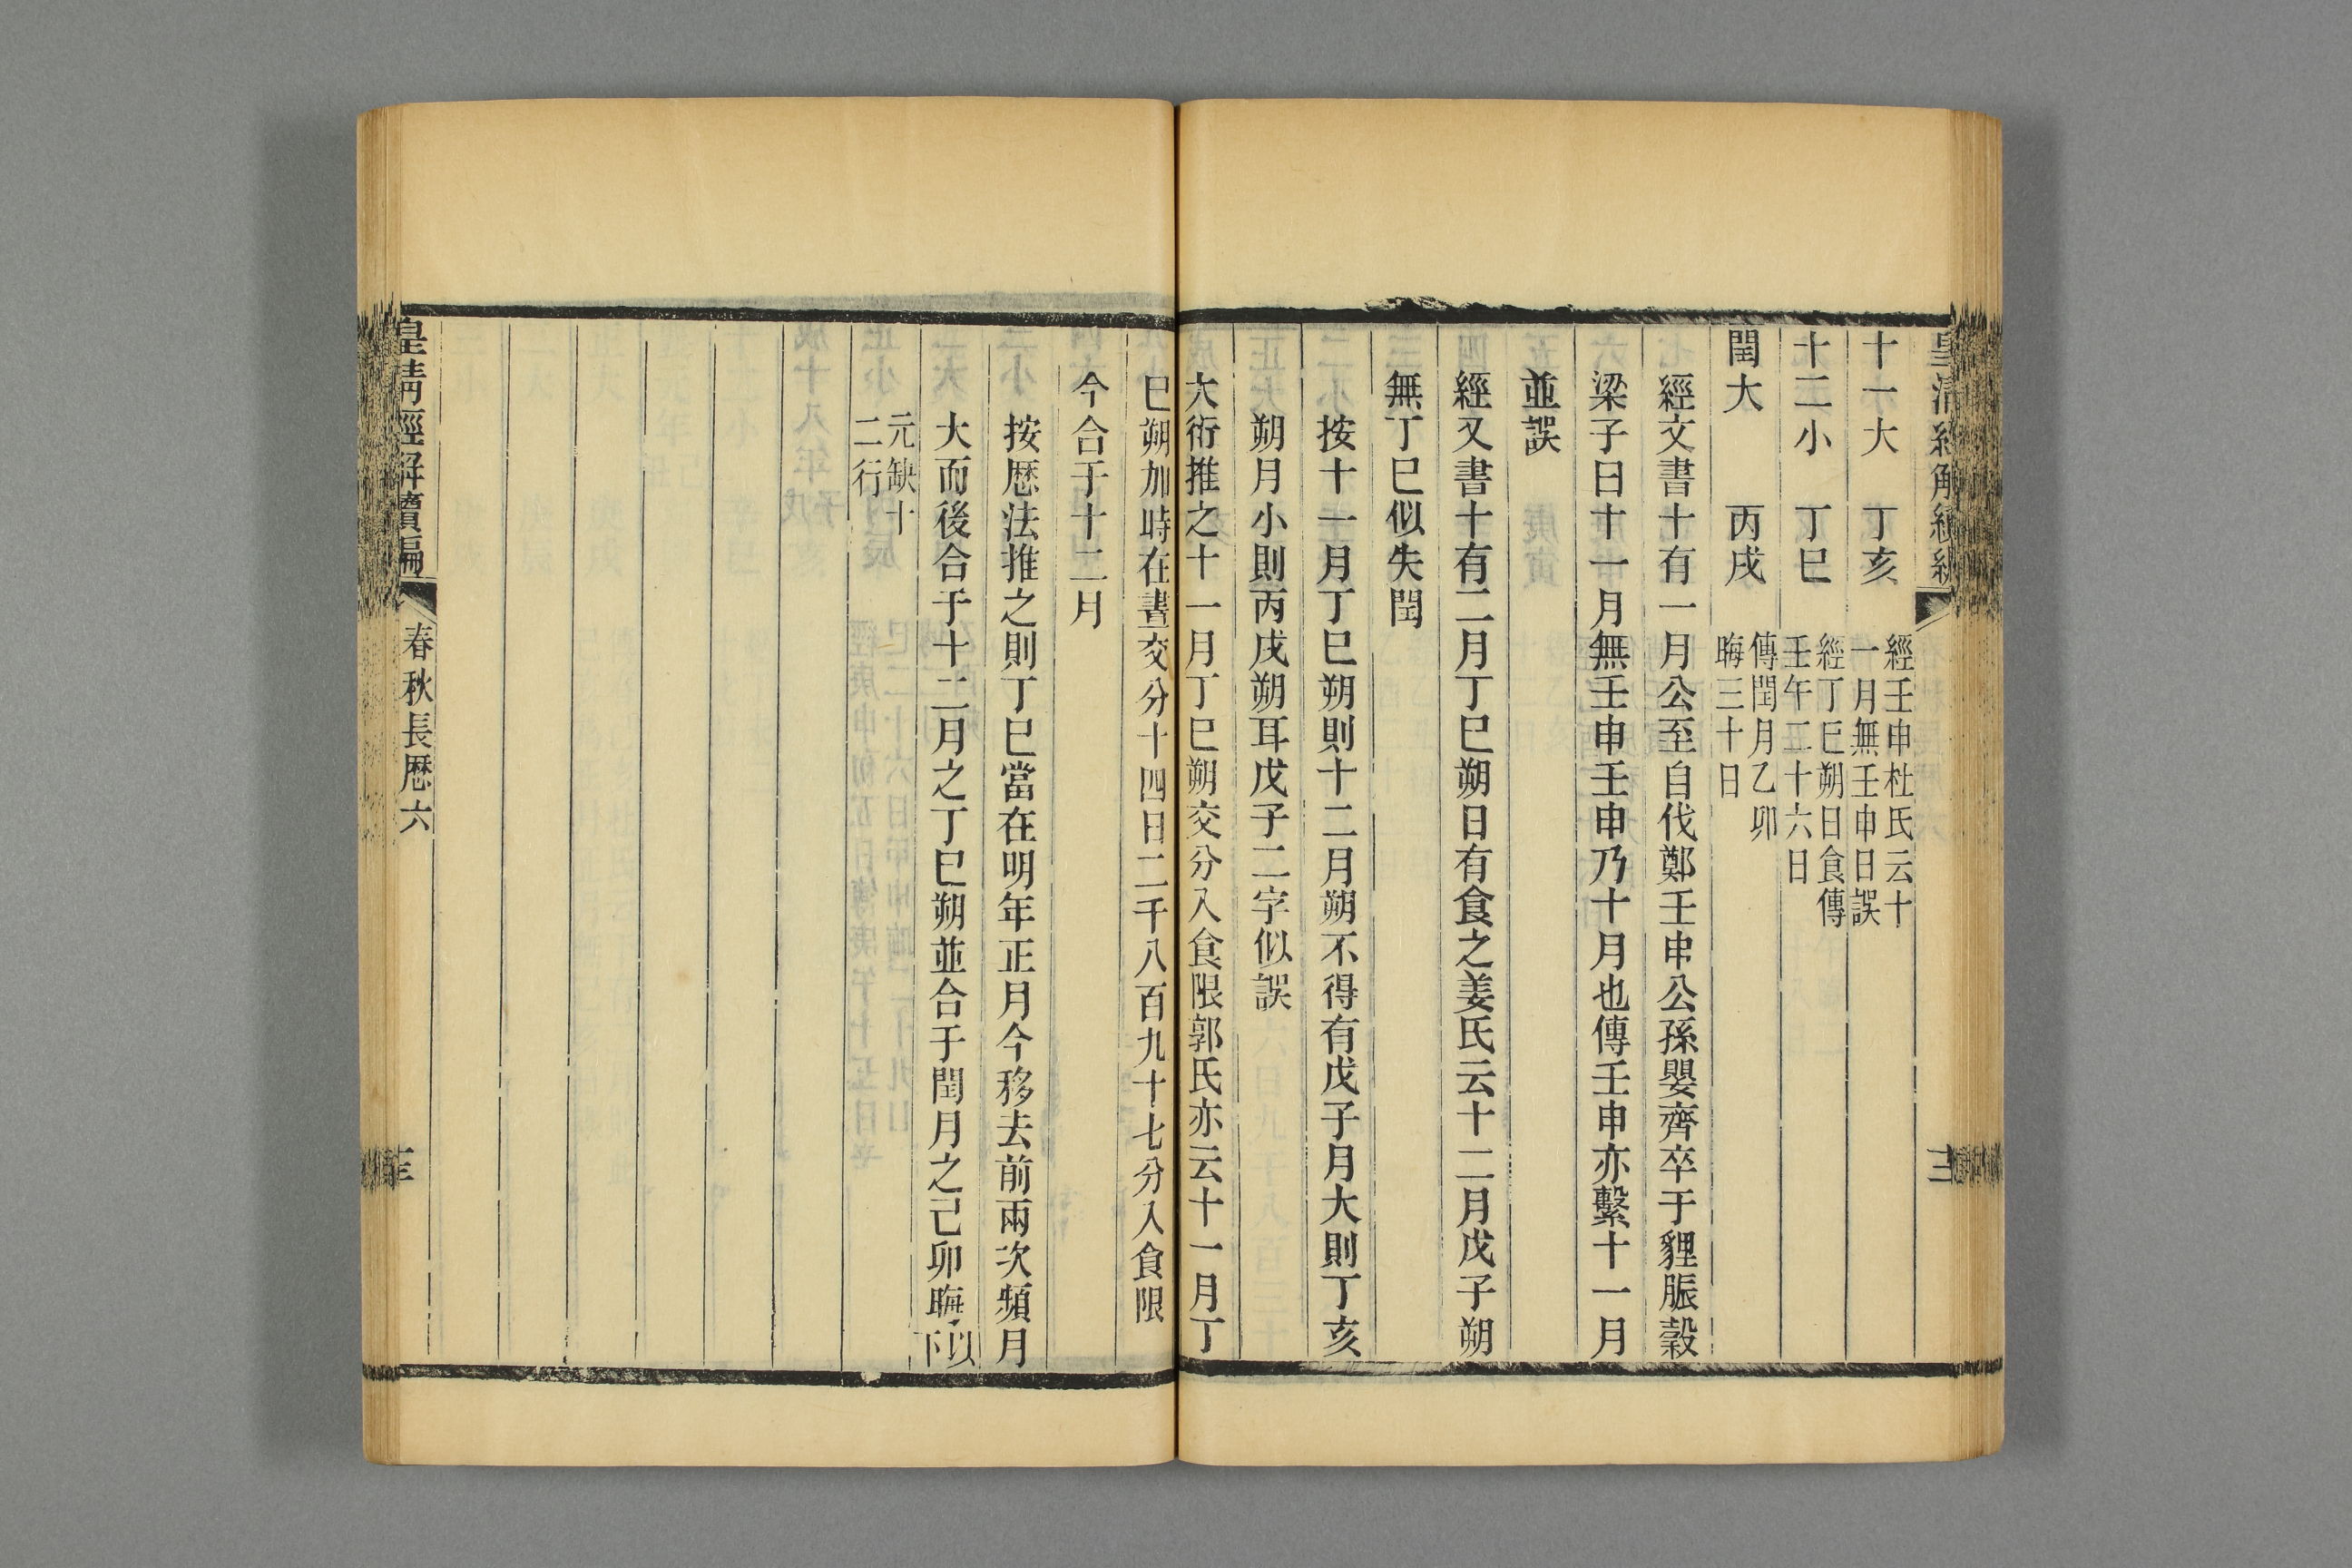 十一大　丁亥　經壬申杜氏云十
一月無壬申日誤
十二小　丁巳　經丁巳朔日食傳
壬午二十六日
閏大　丙戌　傳閏月乙卯
晦三十日
經文書十有一月公至自伐鄭壬申公孫嬰齊卒于貍脤穀
梁子曰十一月無壬申壬申乃十月也傳壬申亦繫十一月
並誤
經又書十有二月丁巳朔日有食之姜氏云十二月戊子朔
無丁巳似失閏
按十一月丁巳朔則十二月朔不得有戊子月大則丁亥
朔月小則丙戌朔耳戊子二字似誤
大衍推之十一月丁巳朔交分入食限郭氏亦云十一月丁
巳朔加時在晝交分十四日二千八百九十七分入食限
今合于十二月
按厯法推之則丁巳當在明年正月今移去前兩次頻月
大而後合于十二月之丁巳朔並合于閏月之己卯晦以
下
元缺十
二行
皇清經解續編
春秋長厯六